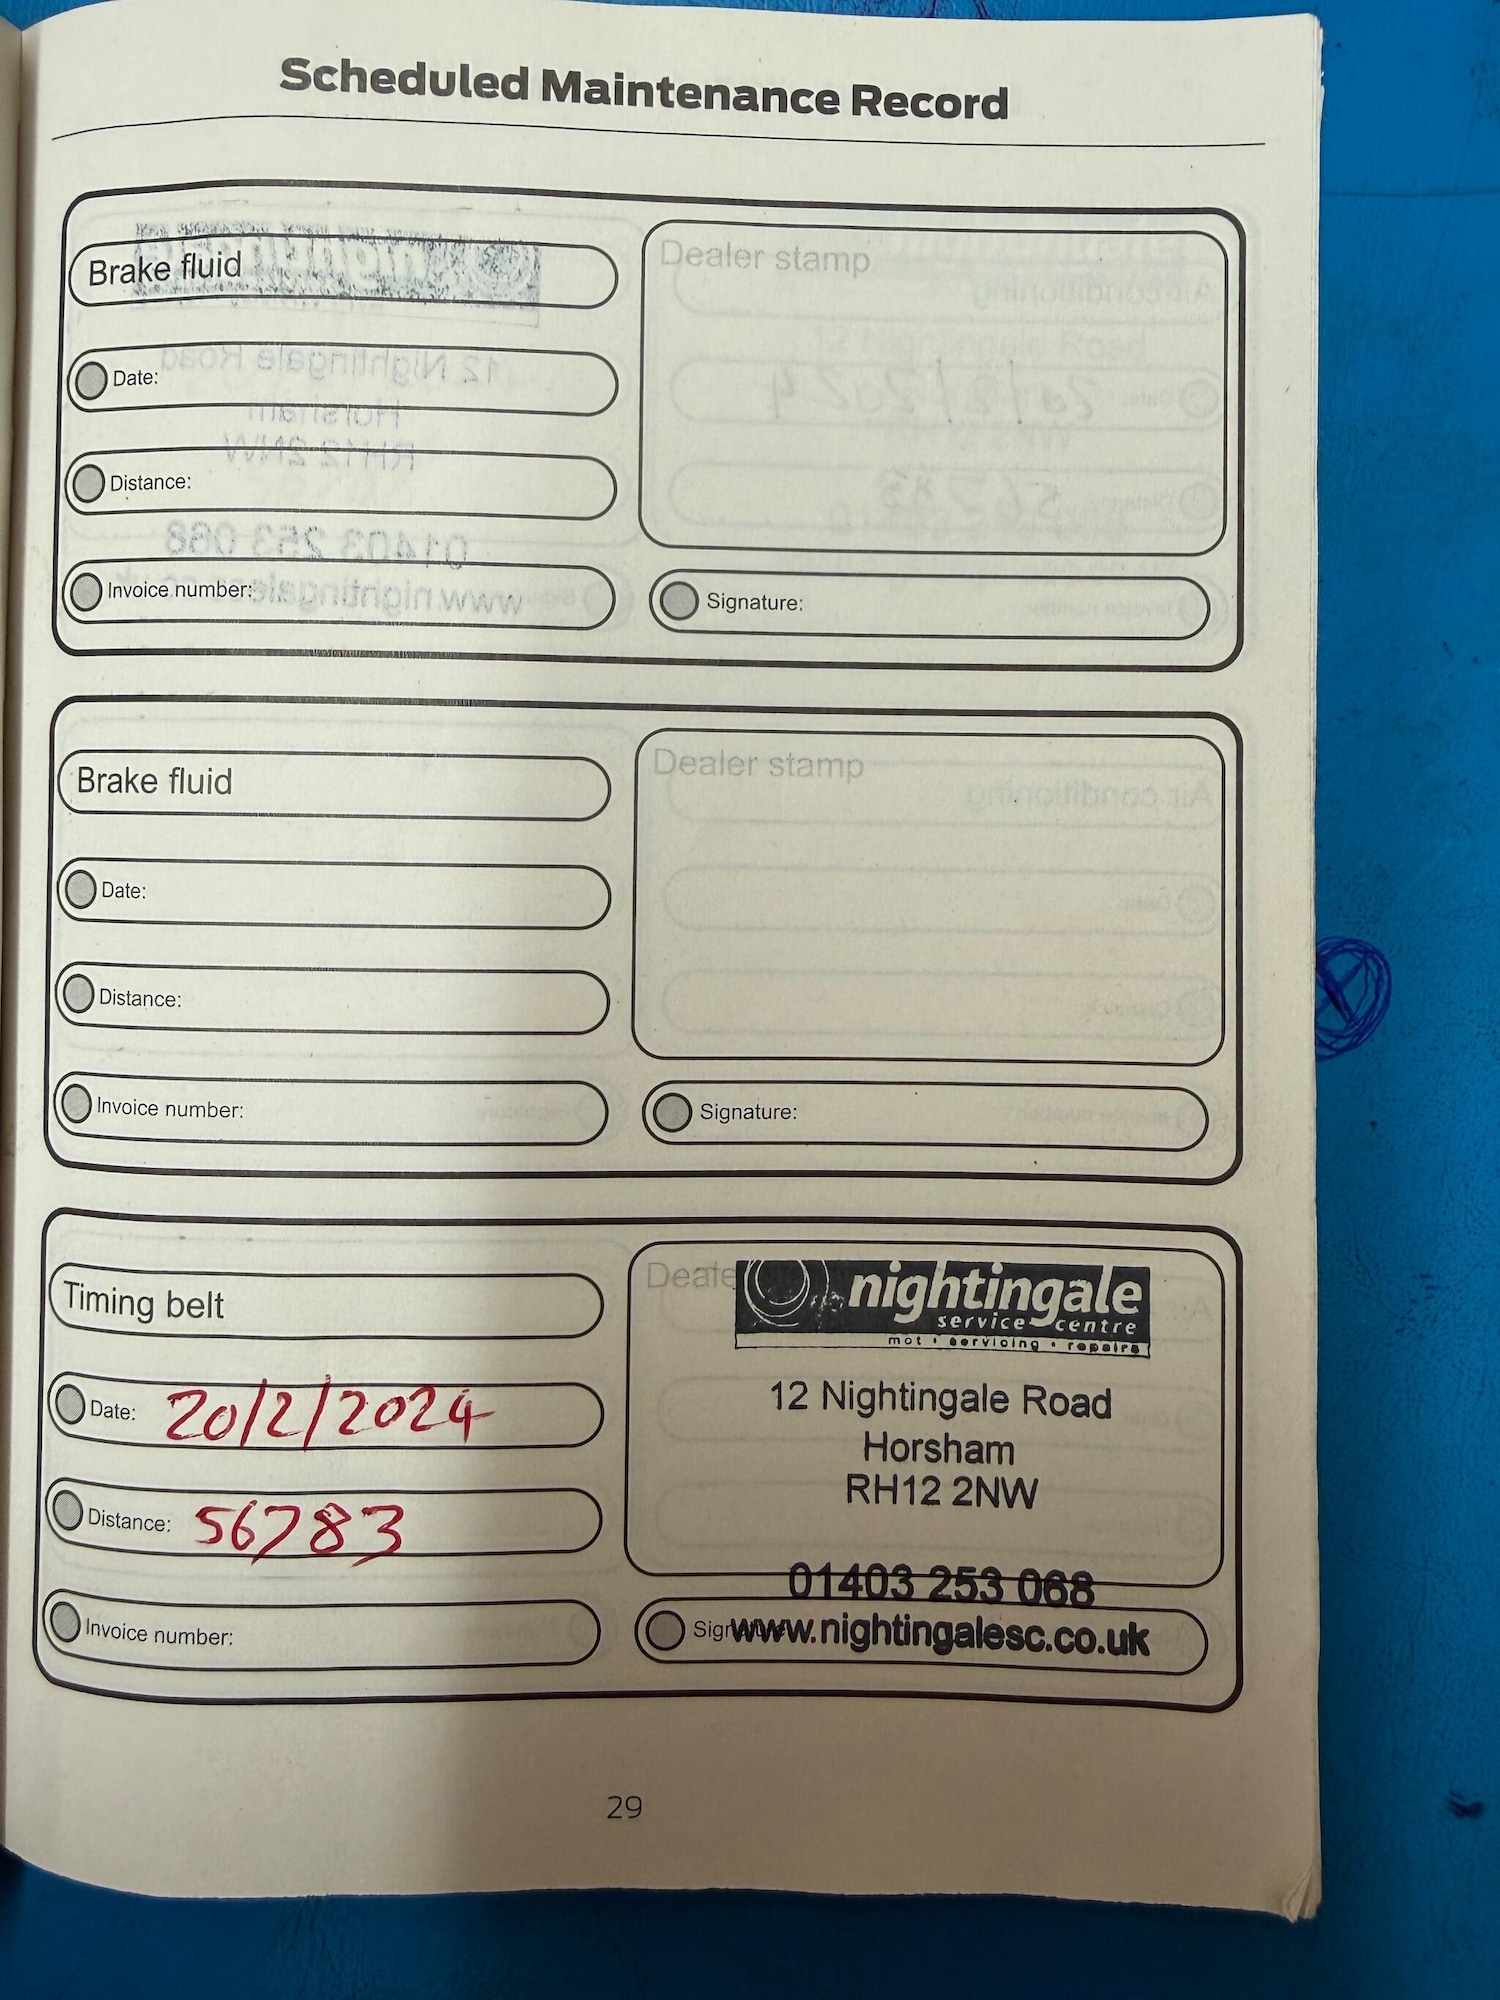 Scheduled Maintenance Record
Brake fluid
Date:
Distance:
Invoice number:
Dealer stamp
Signature:
Brake fluid
Date:
Distance:
Invoice number:
Dealer stamp
Signature:
Timing belt
Date: 20/2/2024
Distance: 56783
Invoice number:
nightingale
service centre
mot • servicing • repairs
12 Nightingale Road
Horsham
RH12 2NW
01403 253 068
www.nightingalesc.co.uk
29